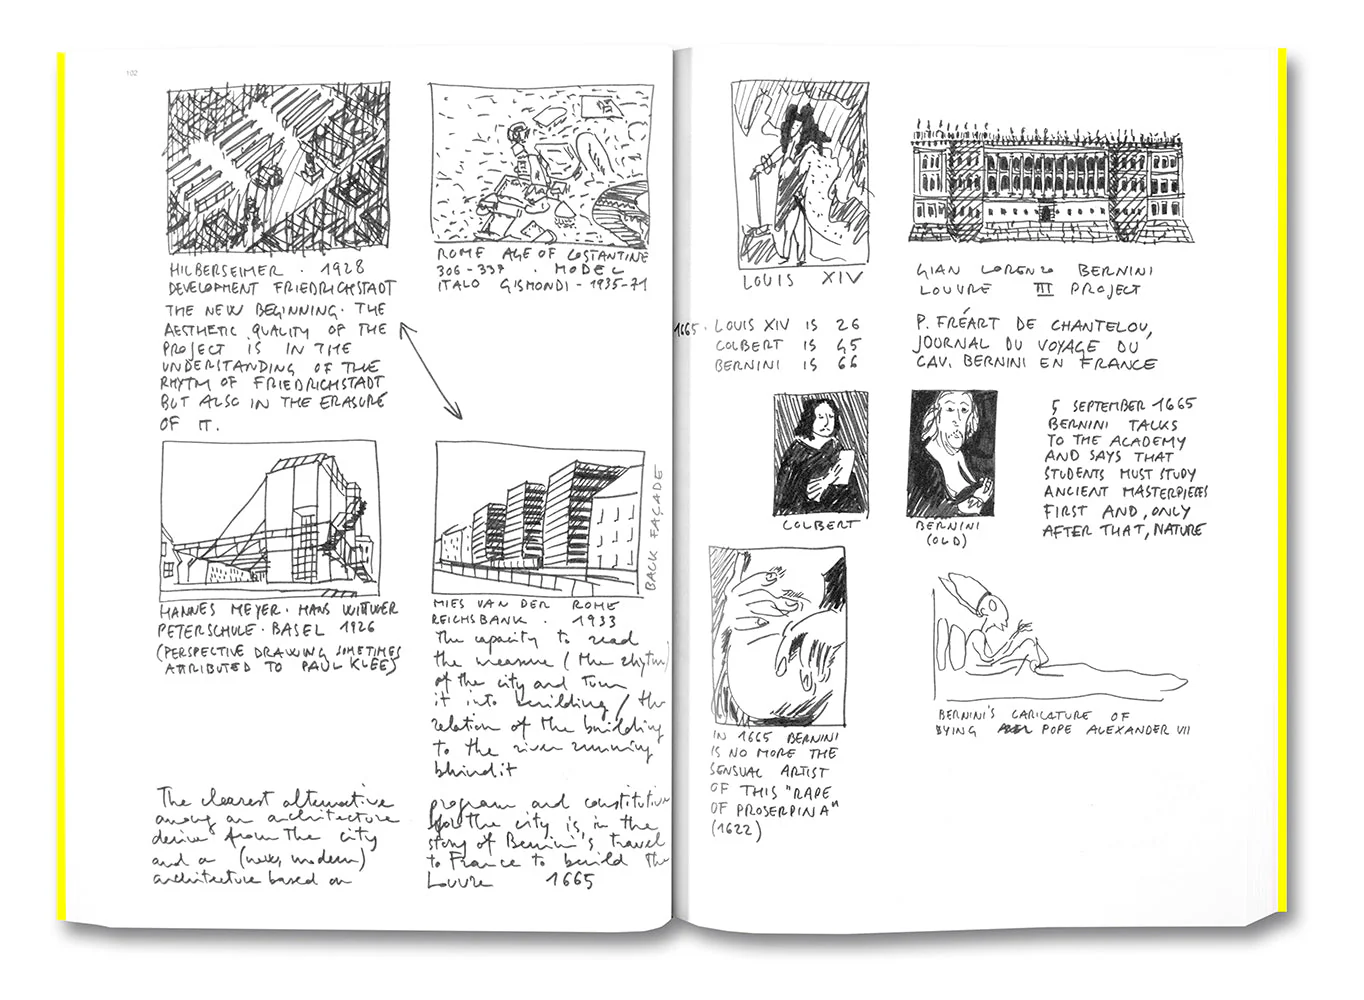 102
HILBERSEIMER · 1928
DEVELOPMENT FRIEDRICHSTADT
THE NEW BEGINNING. THE
AESTHETIC QUALITY OF THE
PROJECT IS IN THE
UNDERSTANDING OF THE
RHYTM OF FRIEDRICHSTADT
BUT ALSO IN THE ERASURE
OF IT.
ROME AGE OF COSTANTINE
306-337 · MODEL
ITALO GISMONDI - 1935-71
HANNES MEYER · HANS WITTWER
PETERSCHULE · BASEL 1926
(PERSPECTIVE DRAWING SOMETIMES
ATTRIBUTED TO PAUL KLEE)
BACK FAÇADE
MIES VAN DER ROHE
REICHSBANK · 1933
the capacity to read
the measure (the rhytm)
of the city and turn
it into building / the
relation of the building
to the river running
behind it
The clearest alternative
among an architecture
derive from the city
and a (new, modern)
architecture based on
program and constitution
for the city is in the
story of Bernini's travel
to France to build the
Louvre 1665
LOUIS XIV
GIAN LORENZO BERNINI
LOUVRE III PROJECT
1665 · LOUIS XIV IS 26
COLBERT IS 45
BERNINI IS 66
P. FRÉART DE CHANTELOU,
JOURNAL DU VOYAGE DU
CAV. BERNINI EN FRANCE
COLBERT
BERNINI
(OLD)
5 SEPTEMBER 1665
BERNINI TALKS
TO THE ACADEMY
AND SAYS THAT
STUDENTS MUST STUDY
ANCIENT MASTERPIECES
FIRST AND, ONLY
AFTER THAT, NATURE
IN 1665 BERNINI
IS NO MORE THE
SENSUAL ARTIST
OF THIS "RAPE
OF PROSERPINA"
(1622)
BERNINI'S CARICATURE OF
DYING POPE ALEXANDER VII